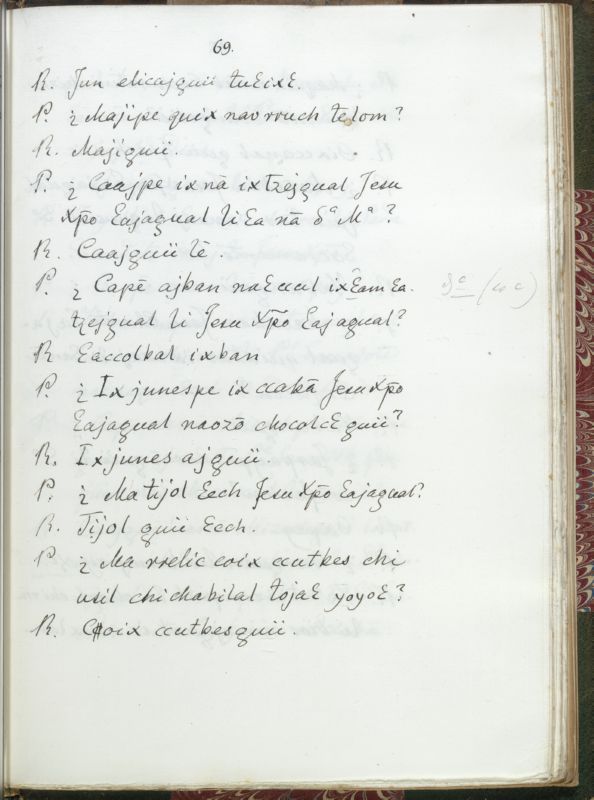 69.
R. Jun elicajguii tuƐixƐ.
P. ¿ Majipe quix nav rruch telom?
R. Majiguii.
P. ¿ Caajpe ix nā ix tzejgual Jesu
Xp̄o Ɛajagual li Ɛa nā Sᵃ Mᵃ?
R. Caajguii lē.
P. ¿ Capē ajban naƐuul ix Ɛam Ɛa
tzejgual li Jesu Xp̄o Ɛajagual?
R Ɛaccolbal ixban
P. ¿ Ix junespe ix ccakā Jesu Xp̄o
Ɛajagual naozō chocolcƐ guii?
R. Ix junes ajguii.
P. ¿ Ma tijol Ɛech Jesu Xp̄o Ɛajagual?
R. Tijol guii Ɛech.
P ¿ Ma rrelic coix ccutbes chi
usil chi chabilal tojaƐ yoyoƐ?
R. Coix ccutbesguii.